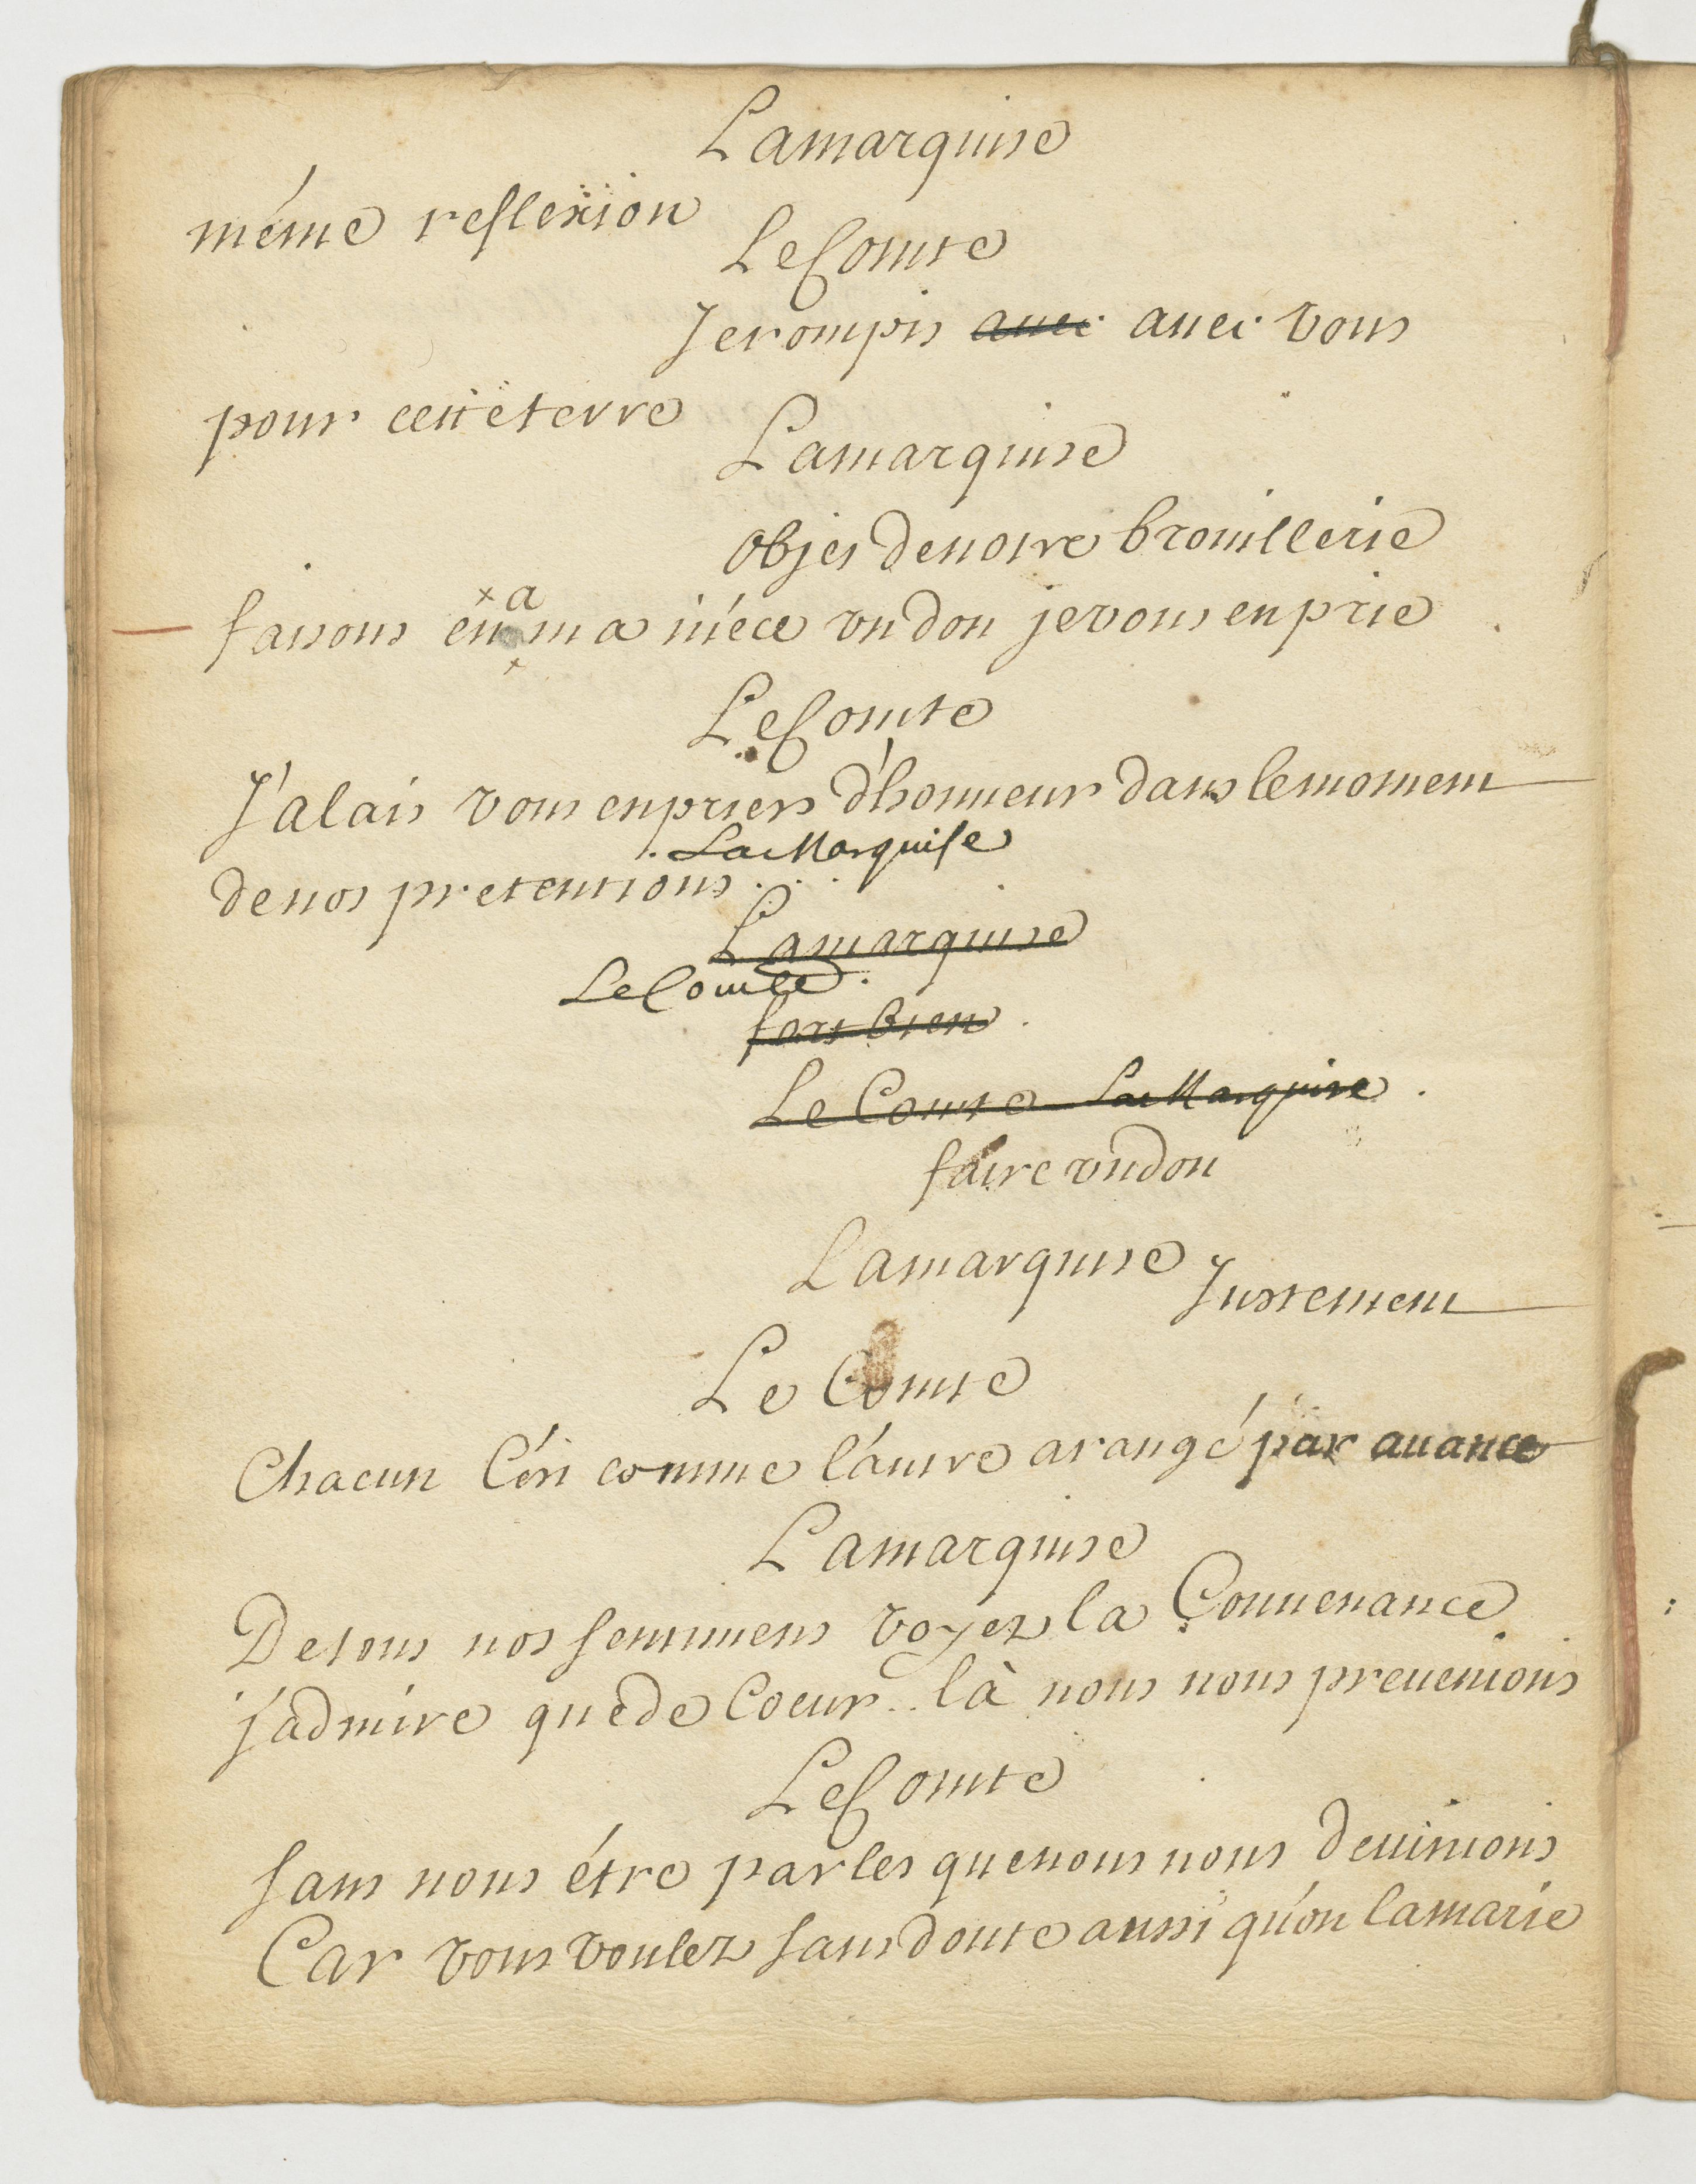 Lamarquise
méme reflexion
LeComte
Jerompis auec auec vous
pour cette terre
Lamarquise
objet denotre brouillerie
faisons en a ma niéce vn don jevous en prie
LeComte
J'alais vous enpriers d'honneur dans lemoment
denos pretentions...
La Marquise
Lamarquise
Le Comte.
fort bien
Le Comte La Marquise.
faire vn don
Lamarquise
Justement
Le Comte
Chacun C'ét comme l'autre arangé par auance
Lamarquise
Detous nos sentimens voyez la Conuenance
j'admire quede Coeur.. là nous nous preuenions
LeComte
sans nous étre parles quenous nous deuinions
Car vous voulez sans doute aussi qu'on lamarie